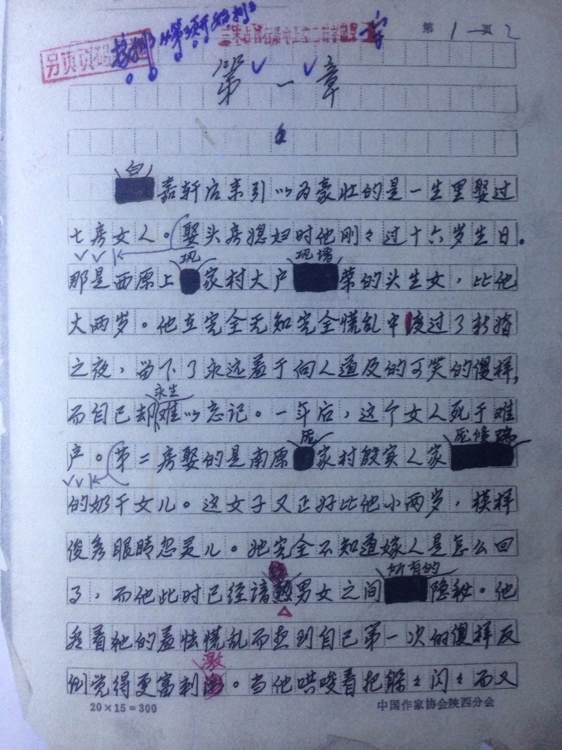 第1-1页
第一章
白嘉轩后来引以为豪壮的是一生里娶过
七房女人。娶头房媳妇时他刚刚过十六岁生日。
那是西原上巩家村大户巩增荣的头生女,比他
大两岁。他在完全无知完全慌乱中度过了新婚
之夜,留下了永远羞于向人道及的可笑的傻样,
而自己却永生难以忘记。一年后,这个女人死于难
产。第二房娶的是南原庞家村殷实人家庞修瑞
的奶干女儿。这女子又正好比他小两岁,模样
俊秀眼睛忽灵儿。她完全不知道嫁人是怎么回
了,而他此时已经谙熟男女之间所有的隐秘。他
看着她的羞怯慌乱而想到自己第一次的傻样反
倒觉得更富刺激。当他哄唆着把躲躲闪闪而又
20×15=300
中国作家协会陕西分会